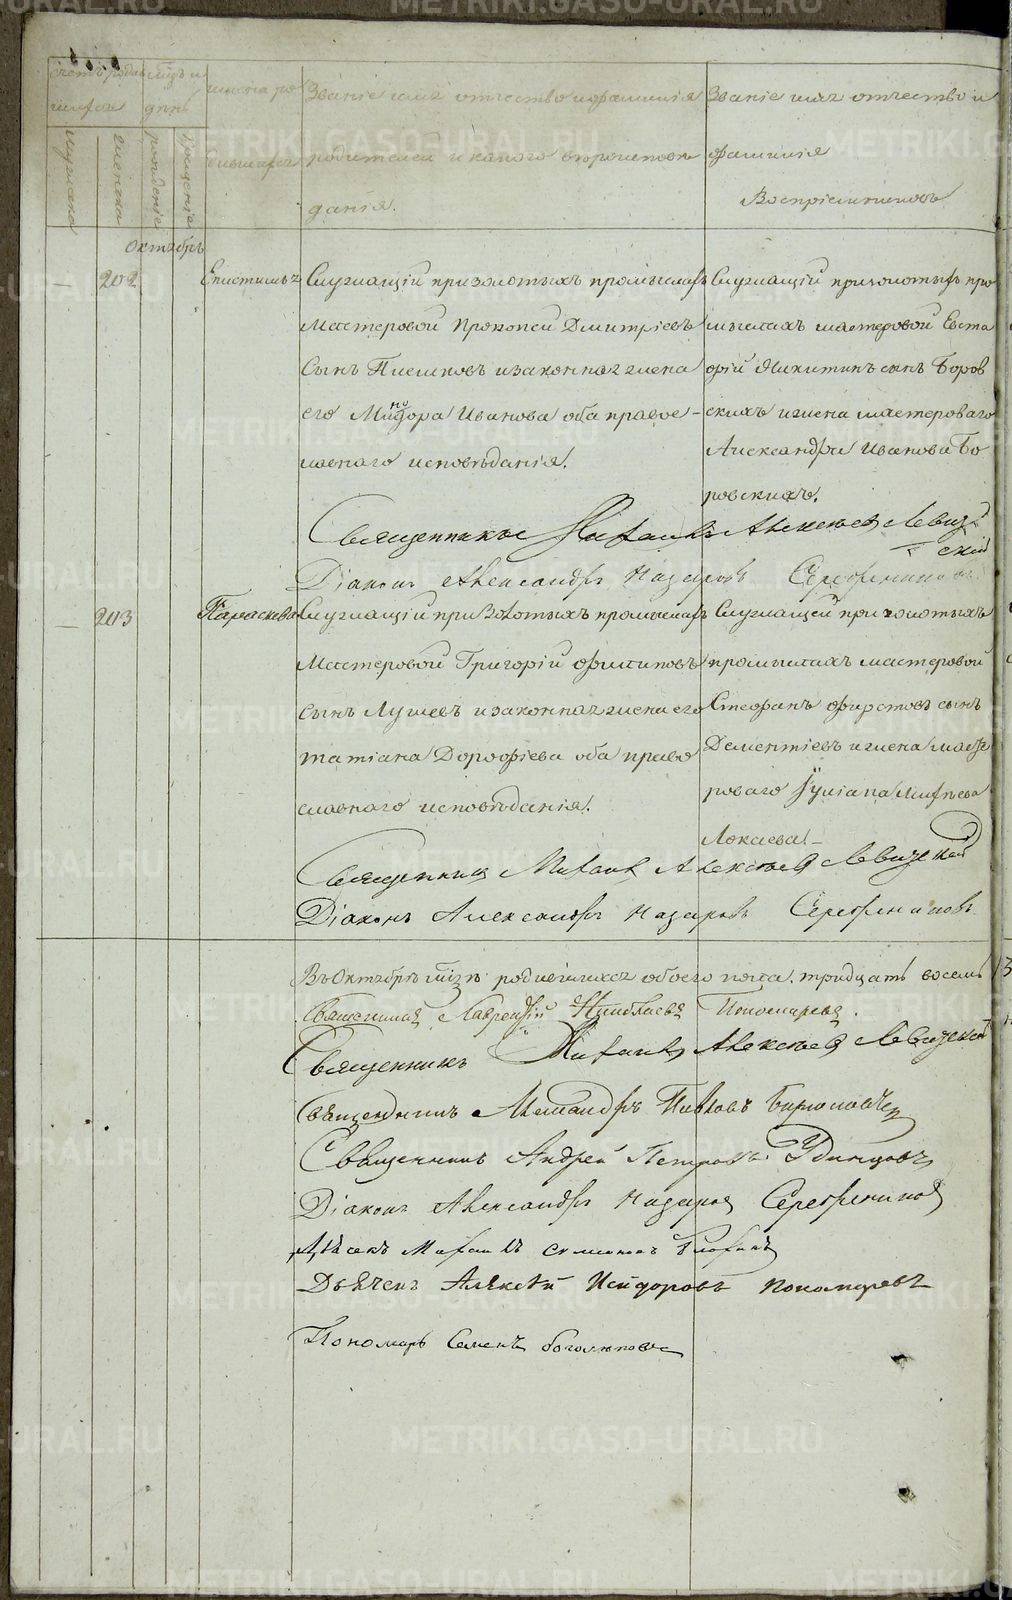 METRIKI.GASO-URAL.RU
Счетъ родив
шихся
Мѣцъ и
днь
имена ро
дившихся
Званіе имя отчество и фамилія
родителей и какого вѣроисповѣ
данія.
Званіе имя отчество и
фамилія
Воспріемниковъ
мужеска
женска
рожденіе
крещенія
Октябрь
— 202 Епистимья
Служащій при золотыхъ промыслахъ
Мастеровой Прокопей Дмитріевъ
сынъ Пешковъ и законная жена
его Минодора Иванова оба право-
славнаго исповѣданія.
Служащій при золотыхъ про
мыслахъ мастеровой Евста
фій Никитинъ сынъ Боров
скихъ и жена мастероваго
Александра Иванова Бо
ровскихъ.
Священникъ Михаилъ Алексѣевъ Левиц
скій
Діаконъ Александръ Назаровъ Серебренниковъ
— 203 Параскева
Служащій при Золотыхъ промыслахъ
Мастеровой Григорій Филиповъ
сынъ Лушевъ и законная жена его
татіана Дорофіева оба право
славнаго исповѣданія.
Служащей при золотыхъ
промыслахъ мастеровой
Стефанъ Фирстовъ сынъ
Дементіевъ и жена масте
роваго Іуліана
Священникъ Михаилъ Алексѣевъ Левицкій
Діаконъ Александръ Назаровъ Серебрениковъ
Въ Октябрѣ мцѣ родившихся обоего пола тридцать восемь
Священникъ Лаврентій Николаевъ Пономаревъ.
Священникъ Михаилъ Алексѣевъ Левицкій
Священникъ Александръ Павловъ
Священникъ Андрей Петровъ Удинцовъ
Діаконъ Александръ Назаровъ Серебрениковъ
Дьячекъ Михаилъ
Дьячекъ Алексѣй Исидоровъ Пономаревъ
Пономарь Семенъ Боголюповъ